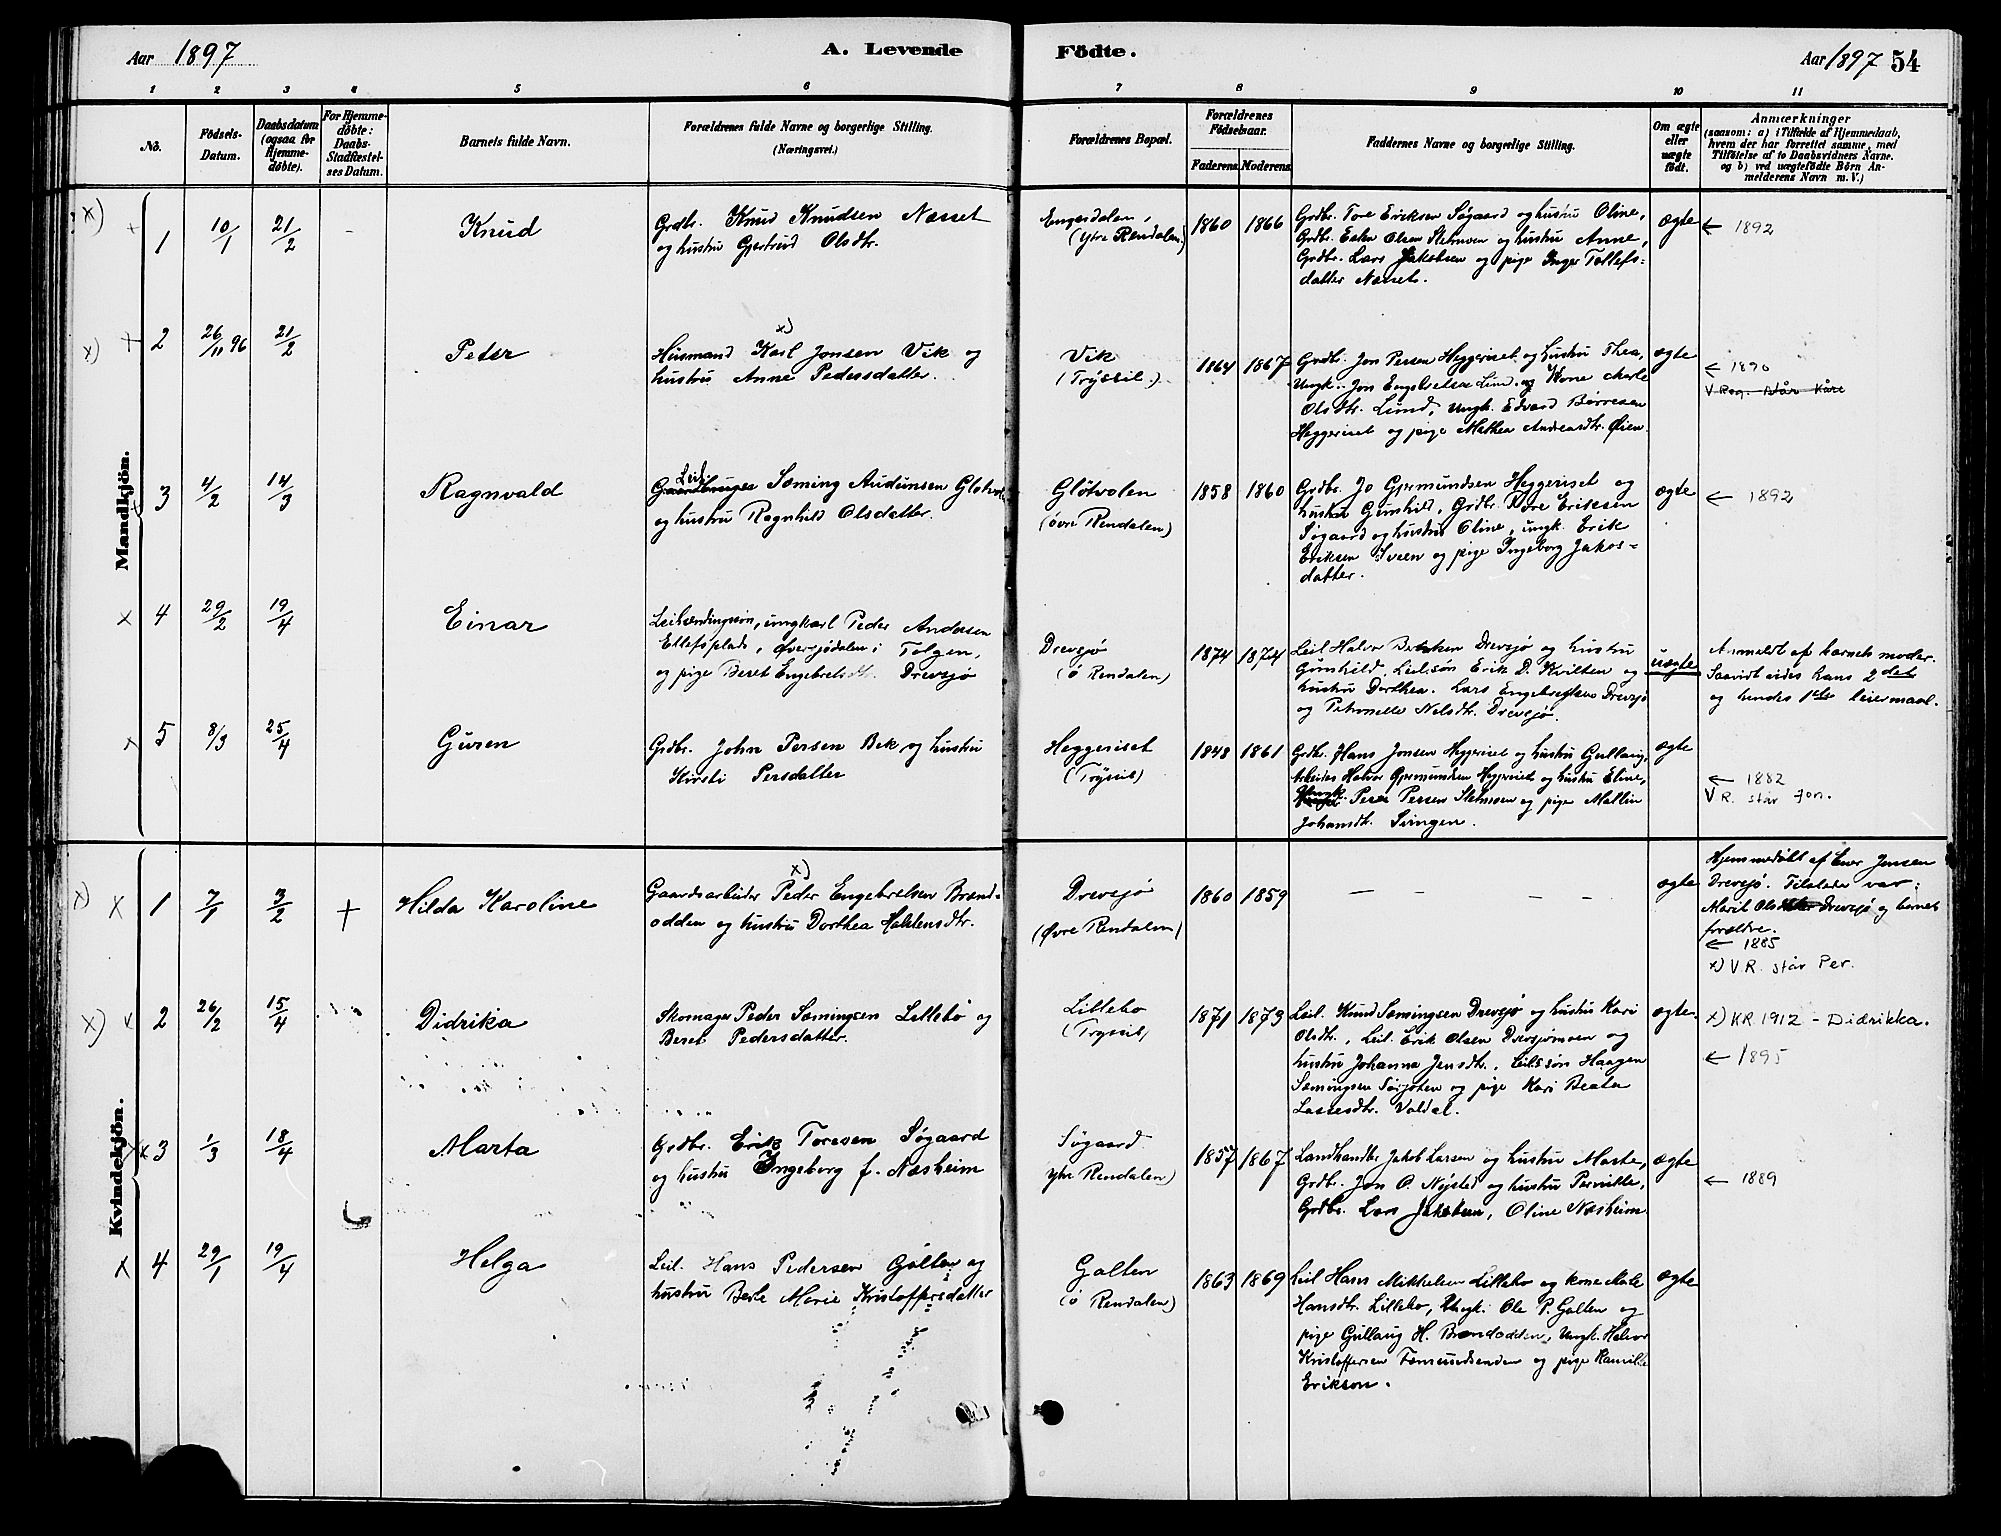 Aar 1897
A. Levende
Födte.
Aar 1897 54
1 2 3 4 5 6 7 8 9 10 11
No.
Födsels-
Datum.
Daabsdatum
(ogsaa for
Hjemme-
döbte).
For Hjemme-
döbte:
Daabs-
Stadfæstel-
ses Datum.
Barnets fulde Navn.
Forældrenes fulde Navne og borgerlige Stilling.
(Næringsvei.)
Forældrenes Bopæl.
Forældrenes
Födselsaar.
Faderens Moderens
Faddernes Navne og borgerlige Stilling.
Om ægte
eller
uægte
födt.
Anmærkninger
(saasom: a) i Tilfælde af Hjemmedaab,
hvem der har forrettet samme, med
Tilföielse af to Daabsvidners Navne.
og b) ved uægtefödte Börn An-
melderens Navn m. V.)
Mandkjön.
x)
1 10/1 21/2 - Knud
Grdbr. Knud Knudsen Næsset
og hustru Gjertrud Olsdtr.
Engerdalen,
(Ytre Rendalen.)
1860 1866
Grdbr. Tore Eriksen Søgaard og hustru Oline,
Grdbr. Esten Olsen Stemoen og hustru Anne,
Grdbr. Lars Jakobsen og pige Inger Tollefs-
datter Næsset.
ægte
← 1892
x)
2 26/11 96 21/2 Peder
x)
Husmand Karl Jonsen Vik og
hustru Anne Pedersdatter.
Vik
(Trysil.)
1864 1867
Grdbr. Jon Persen Heggeriset og hustru Thea,
Ungk. Jon Engebretsen Lund og Kone Marte
Olsdtr. Lund, Ungk. Edvard Børresen
Heggeriset og pige Mathea Andreasdtr. Øien.
ægte
← 1890
V Reg. står Kåre
3 4/2 14/3 Ragnvald
Leil.
Gaardbruger Sæming Audunsen Gløtvol
og hustru Ragnhild Olsdatter.
Gløtvolen
(øvre Rendalen)
1858 1860
Grdbr. Jo Gjermundsen Heggeriset og
hustru Gunhild, Grdbr. Tore Eriksen
Søgaard og hustru Oline, ungk. Erik
Eriksen Sveen og pige Ingeborg Jakos-
datter.
ægte
← 1892
x 4 29/2 19/4 Einar
Leilændingsøn, ungkarl Peder Andersen
Ellefsplads, Øversjødalen i Tolgen,
og pige Beret Engebretsdt. Drevsjø
Drevsjø
(ø Rendalen)
1874 1874
Leil Halvor Drevsjø og hustru
Gunhild, Leil.søn Erik D. Kvilten og
hustru Dorthea. Lars Engebretsen Drevsjø
og Petronelle Nilsdtr. Drevsjø.
uægte
Anmeldt af barnets moder.
Saavidt vides hans 2det
og hendes 1ste leiermaal.
5 8/3 25/4 Guren
Grdbr. John Persen Bek og hustru
Kirsti Persdatter
Heggeriset
(Trysil)
1848 1861
Grdbr. Hans Jonsen Heggeriset og hustru Gullaug,
Arbeider Halvor Gjermundsen Heggeriset og hustru Eline,
Ungk. Peder Persen Stemoen og pige Mallin
Johansdt. Svingen.
ægte
← 1882
V R. står Jon.
Kvindekjön.
x)
x 1 7/1 3/2 + Hilda Karoline
x)
Gaardsarbeider Peder Engebretsen Brænd-
odden og hustru Dorthea Haldensdtr.
Drevsjø
(Øvre Rendalen)
1860 1859
— — — —
ægte
Hjemmedøbt af Iver Jensen
Drevsjø. Tilstede var:
Marit Drevsjø og barnets
forældre.
← 1885
x) V.R. står Per.
x)
2 26/2 15/4 Didrika
Skomager Peder Sæmingsen Lillebo og
Beret Pedersdatter.
Lillebo
(Trysil)
1871 1873
Leil. Knud Sæmingsen Drevsjø og hustru Kari
Olsdtr., Leil. Erik Olsen Drevsjømoen og
hustru Johanna Jensdtr., Leilssøn Haagen
Sæmingsen Sørjoten og pige Kari Beata
Lassesdtr. Valdal.
ægte.
x) KR 1912 - Didrikka.
← 1895
x 3 1/3 18/4 Marta
Grdbr. Erik Toresen Søgaard
og hustru Ingeborg f. Næsheim
Søgaard
Ytre Rendalen)
1857 1867
Landhandler Jakob Larsen og hustru Marte,
Grdbr. Jon O. Nysted og hustru Pernille,
Grdbr. Lars Jakobsen, Oline Næsheim
ægte
← 1889
x 4 29/1 19/4 Helga
Leil. Hans Pedersen Galten og
hustru Berte Marie Kristoffersdatter
Galten
(ø Rendalen)
1863 1869
Leil Hans Mikkelsen Lillebo og kone Mate
Hansdtr. Lillebo, Ungk. Ole P. Galten og
pige Gullaug H. Brændodden, Ungk. Halvor
Kristoffersen Femundsenden og pige Ramille
Erikson.
ægte